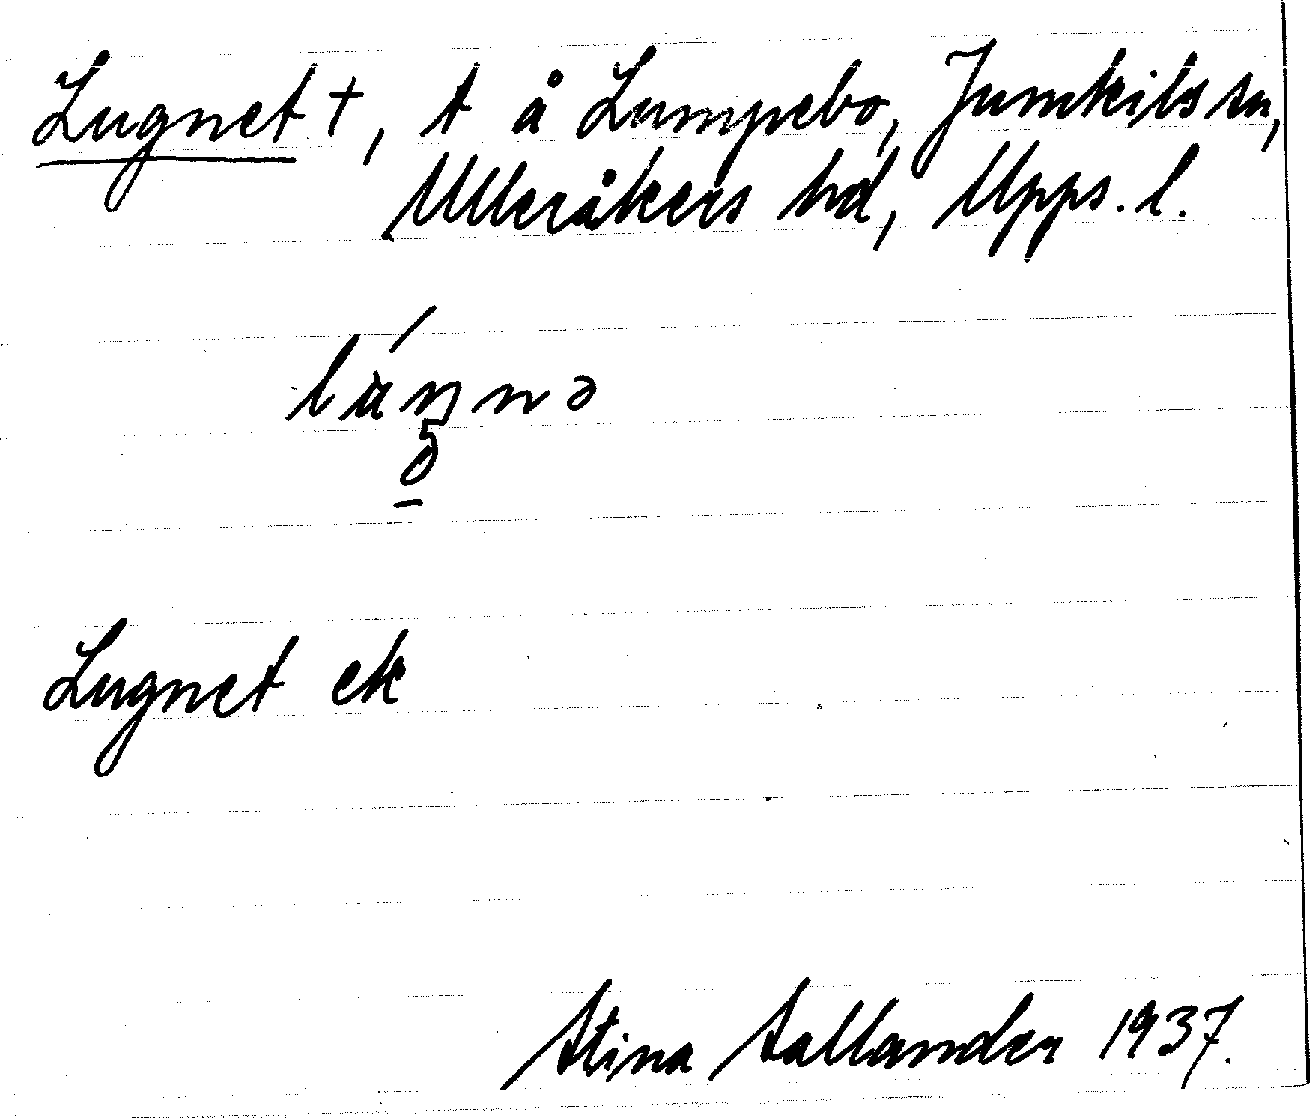 Lugnet †, t å Lumpebo, Jumkils sn,
Ulleråkers hd, Upps. l.
Lugnet ek
Stina Sallander 1937.